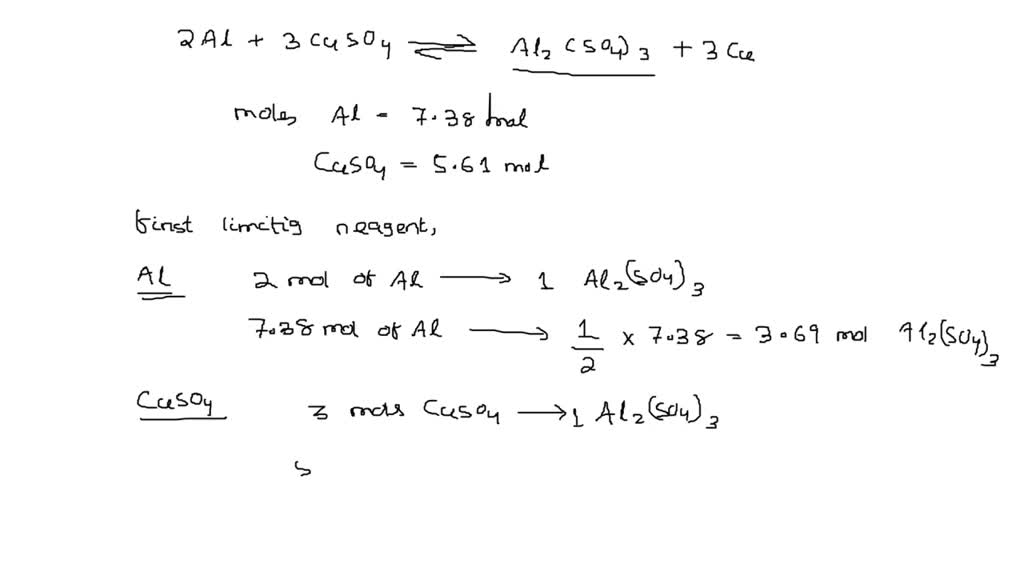 2Al + 3CuSO4 ⇌ Al2(SO4)3 + 3Cu
moles Al = 7.38 mol
CuSO4 = 5.61 mol
first limitig reagent,
Al 2 mol of Al → 1 Al2(SO4)3
7.38 mol of Al → 1/2 × 7.38 = 3.69 mol Al2(SO4)3
CuSO4 3 mols CuSO4 → 1 Al2(SO4)3